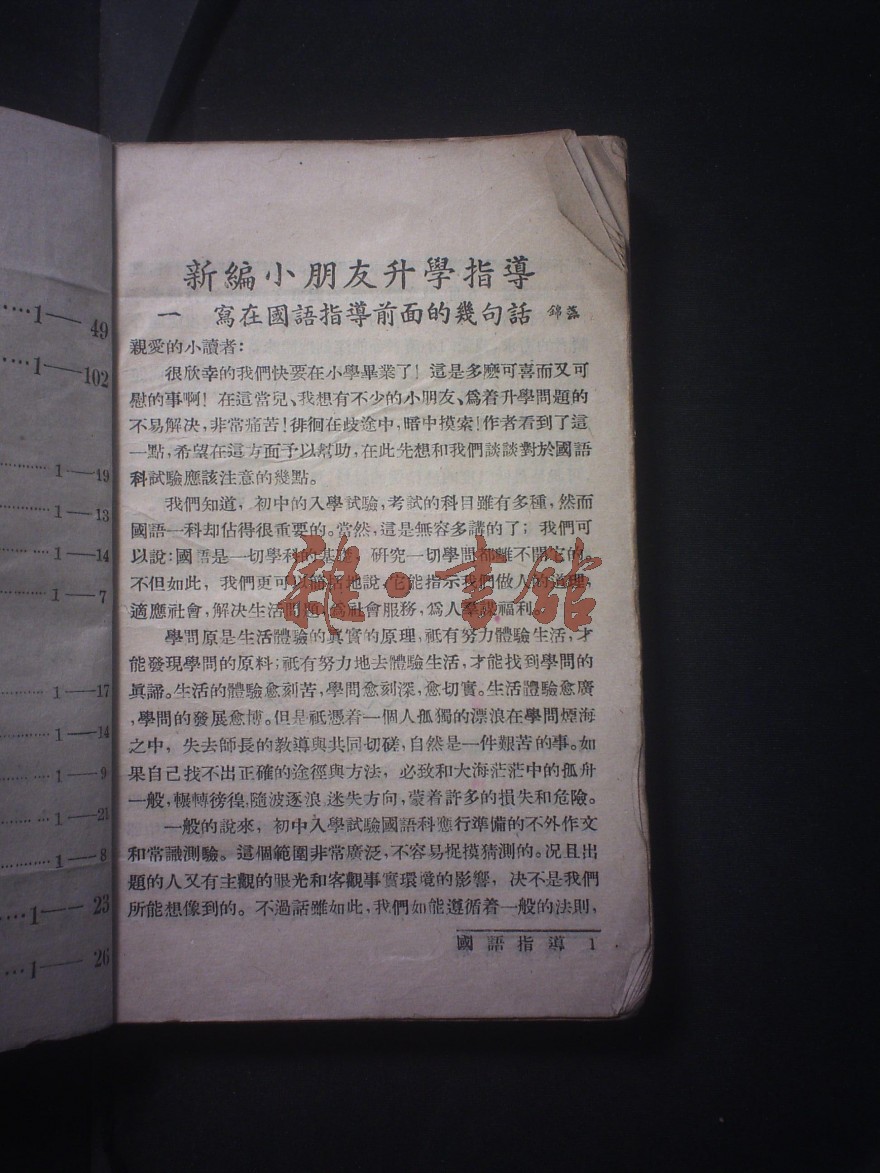 1—49
1—102
1—19
1—13
1—14
1—7
1—17
1—14
1—9
1—21
1—8
1—23
1—26
新編小朋友升學指導
一 寫在國語指導前面的幾句話 錦
親愛的小讀者：
很欣幸的我們快要在小學畢業了！這是多麽可喜而又可
慰的事啊！在這當兒、我想有不少的小朋友、爲着升學問題的
不易解決，非常痛苦！徘徊在歧途中，暗中摸索！作者看到了這
一點，希望在這方面予以幫助，在此先想和我們談談對於國語
科試驗應該注意的幾點。
我們知道，初中的入學試驗，考試的科目雖有多種，然而
國語一科却佔得很重要的。當然，這是無容多講的了；我們可
以說：國語是一切學科的基礎，研究一切學問都離不開它的。
不但如此，我們更可以簡括地說，它能指示我們做人的道理，
適應社會，解決生活問題，爲社會服務，爲人羣謀福利。
學問原是生活體驗的眞實的原理，祇有努力體驗生活，才
能發現學問的原料；祇有努力地去體驗生活，才能找到學問的
眞諦。生活的體驗愈刻苦，學問愈刻深，愈切實。生活體驗愈廣
，學問的發展愈博。但是祇憑着一個人孤獨的漂浪在學問煙海
之中，失去師長的教導與共同切磋，自然是一件艱苦的事。如
果自己找不出正確的途徑與方法，必致和大海茫茫中的孤舟
一般，輾轉徬徨，隨波逐浪，迷失方向，蒙着許多的損失和危險。
一般的說來，初中入學試驗國語科應行準備的不外作文
和常識測驗。這個範圍非常廣泛，不容易捉摸猜測的。况且出
題的人又有主觀的眼光和客觀事實環境的影響，決不是我們
所能想像到的。不過話雖如此，我們如能遵循着一般的法則，
國語指導 1
雜·書館